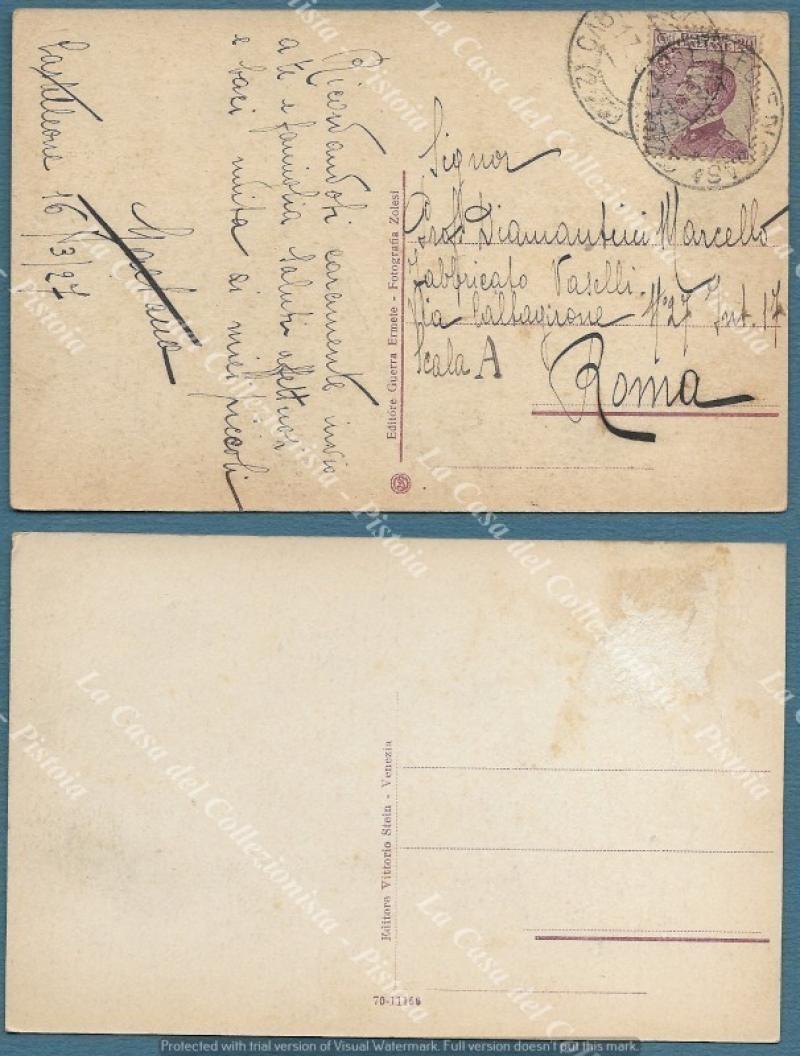 Castelleone 16/3/27
Ricordandoti caramente invio
a te e famiglia saluti affettuosi
e baci unita ai miei piccoli
Signor
Prof. Diamantini Marcello
Fabbricato Vaselli
Via Caltagirone N° 27 Int. 17
Scala A
Roma
Editore Guerra Ermete - Fotografia Zolesi
Editore Vittorio Stein - Venezia
70-11168
La Casa del Collezionista - Pistoia
Protected with trial version of Visual Watermark. Full version doesn't put this mark.